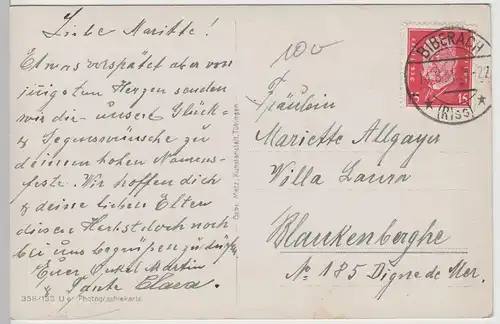 Liebe Mariette!
Etwas verspätet aber von
innigsten Herzen senden
wir dir unsere Glück-
& Segenswünsche zu
deinem hohen Namens-
feste. Wir hoffen dich
& deine lieben Elten
diesen Herbst doch noch
bei uns begrüßen zu dürfen
Euer Onkel Martin
& Tante Clara.
358/133 Photographiekarte
Gebr. Metz, Kunstanstalt, Tübingen
100
BIBERACH
(RISS)
15 15
Fräulein
Mariette Allgayer
Villa Laura
Blankenberghe
No 185 Digue de Mer.